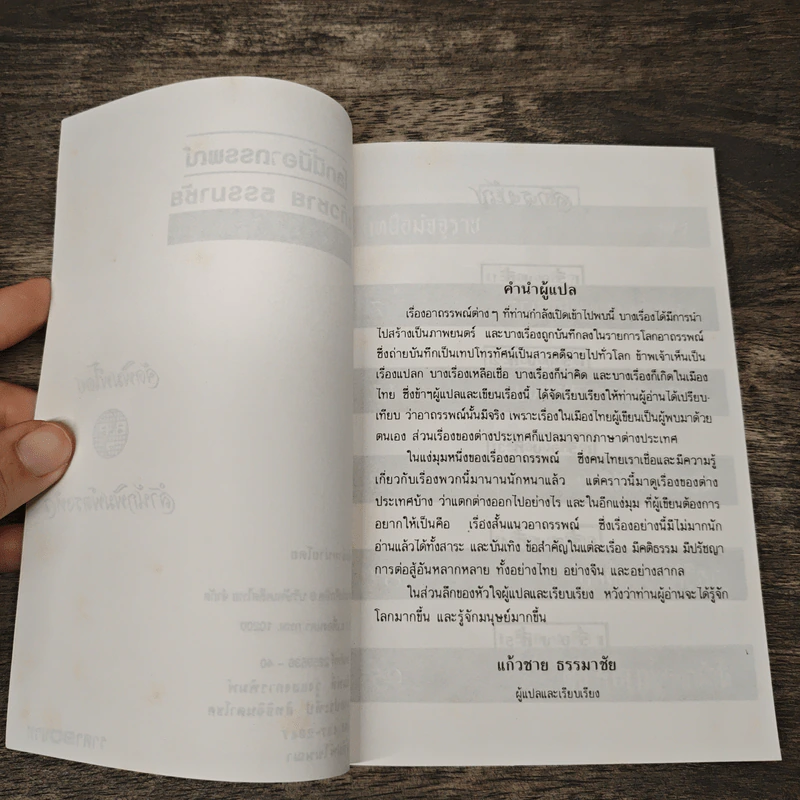 คำนำผู้แปล
เรื่องอาถรรพณ์ต่าง ๆ ที่ท่านกำลังเปิดเข้าไปพบนี้ บางเรื่องได้มีการนำ
ไปสร้างเป็นภาพยนตร์ และบางเรื่องถูกบันทึกลงในรายการโลกอาถรรพณ์
ซึ่งถ่ายบันทึกเป็นเทปโทรทัศน์เป็นสารคดีฉายไปทั่วโลก ข้าพเจ้าเห็นเป็น
เรื่องแปลก บางเรื่องเหลือเชื่อ บางเรื่องก็น่าคิด และบางเรื่องก็เกิดในเมือง
ไทย ซึ่งข้าฯผู้แปลและเขียนเรื่องนี้ ได้จัดเรียบเรียงให้ท่านผู้อ่านได้เปรียบ-
เทียบ ว่าอาถรรพณ์นั้นมีจริง เพราะเรื่องในเมืองไทยผู้เขียนเป็นผู้พบมาด้วย
ตนเอง ส่วนเรื่องของต่างประเทศก็แปลมาจากภาษาต่างประเทศ
ในแง่มุมหนึ่งของเรื่องอาถรรพณ์ ซึ่งคนไทยเราเชื่อและมีความรู้
เกี่ยวกับเรื่องพวกนี้มานานนักหนาแล้ว แต่คราวนี้มาดูเรื่องของต่าง
ประเทศบ้าง ว่าแตกต่างออกไปอย่างไร และในอีกแง่มุม ที่ผู้เขียนต้องการ
อยากให้เป็นคือ เรื่องสั้นแนวอาถรรพณ์ ซึ่งเรื่องอย่างนี้มีไม่มากนัก
อ่านแล้วได้ทั้งสาระ และบันเทิง ข้อสำคัญในแต่ละเรื่อง มีคติธรรม มีปรัชญา
การต่อสู้อันหลากหลาย ทั้งอย่างไทย อย่างจีน และอย่างสากล
ในส่วนลึกของหัวใจผู้แปลและเรียบเรียง หวังว่าท่านผู้อ่านจะได้รู้จัก
โลกมากขึ้น และรู้จักมนุษย์มากขึ้น
แก้วชาย ธรรมาชัย
ผู้แปลและเรียบเรียง